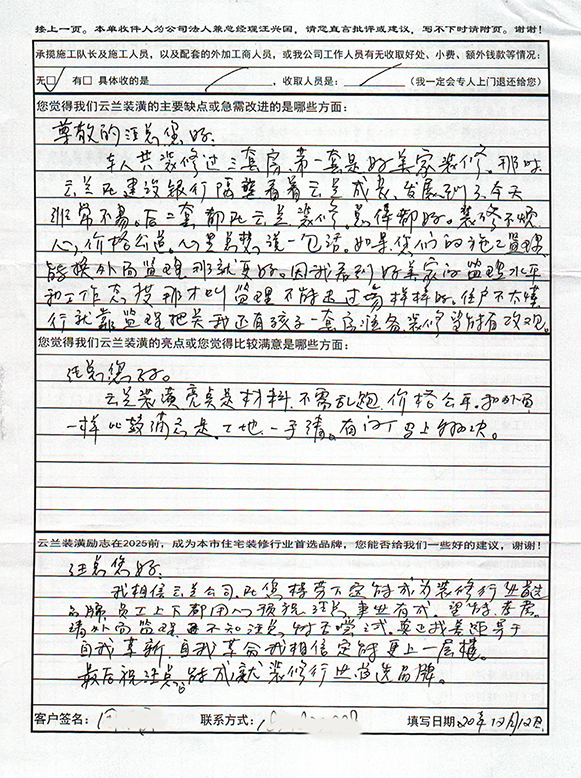 接上一页。本单收件人为公司法人兼总经理汪兴国，请您直言批评或建议，写不下时请附页。谢谢！
承揽施工队长及施工人员，以及配套的外加工商人员，或我公司工作人员有无收取好处、小费、额外钱款等情况：
无☑ 有□ 具体收的是，收取人员是：（我一定会专人上门退还给您）
您觉得我们云兰装潢的主要缺点或急需改进的是哪些方面：
尊敬的汪总您好：
本人共装修过三套房，第一套是好美家装修。那时
云兰在建设银行隔壁看着云兰成长、发展到了今天
非常不易。后二套都在云兰装修，觉得都好。装修不烦
人，价格公道。心里总想说一句话。如果您们的施工监理
能换外面监理那就更好。因我看到好美家的监理水平
和工作态度那才叫监理不能走过场样样好。住户不太懂
行就靠监理把关我还有孩子一套房准备装修望能有改观。
您觉得我们云兰装潢的亮点或您觉得比较满意是哪些方面：
汪总您好。
云兰装潢亮点是材料不需乱跑，价格公平。和外面
一样比较满意是。工地一手清。有问门马上解决。
云兰装潢励志在2025前，成为本市住宅装修行业首选品牌，您能否给我们一些好的建议，谢谢！
汪总您好：
我相信云兰公司，在您领导下定能成为装修行业首选
品牌，员工上下都用心预祝汪总事业有成。望能考虑
请外面监理，要不知汪总能否尝试。真正我差距等于
自我革新，自我革命我相信定能更上一层楼。
最后祝汪总。能成就装修行业首选品牌。
客户签名： 联系方式： 填写日期20年12月12日